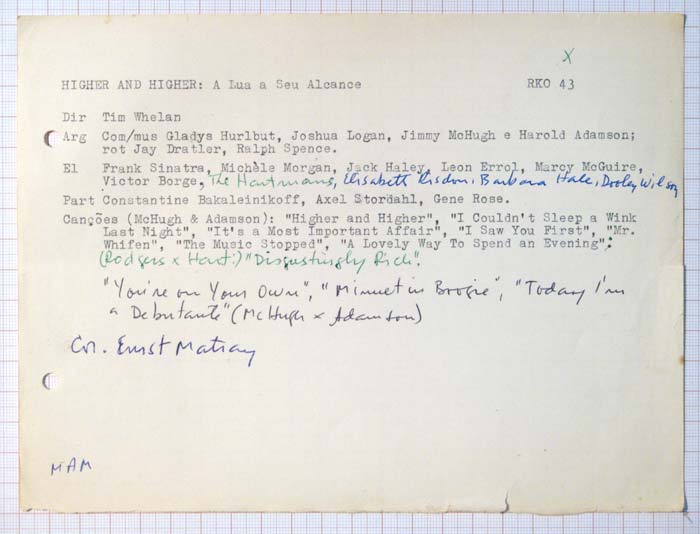 X
HIGHER AND HIGHER: A Lua a Seu Alcance RKO 43
Dir Tim Whelan
Arg Com/mus Gladys Hurlbut, Joshua Logan, Jimmy McHugh e Harold Adamson;
rot Jay Dratler, Ralph Spence.
El Frank Sinatra, Michèle Morgan, Jack Haley, Leon Errol, Marcy McGuire,
Victor Borge, The Hartmans, Elisabeth Risdon, Barbara Hale, Dooley Wilson
Part Constantine Bakaleinikoff, Axel Stordahl, Gene Rose.
Canções (McHugh & Adamson): "Higher and Higher", "I Couldn't Sleep a Wink
Last Night", "It's a Most Important Affair", "I Saw You First", "Mr.
Whifen", "The Music Stopped", "A Lovely Way To Spend an Evening":
(Rodgers x Hart:) "Disgustingly Rich".
"You're on Your Own", "Minuet in Boogie", "Today I'm
a Debutante" (McHugh x Adamson)
Cor. Ernst Matray
MAM